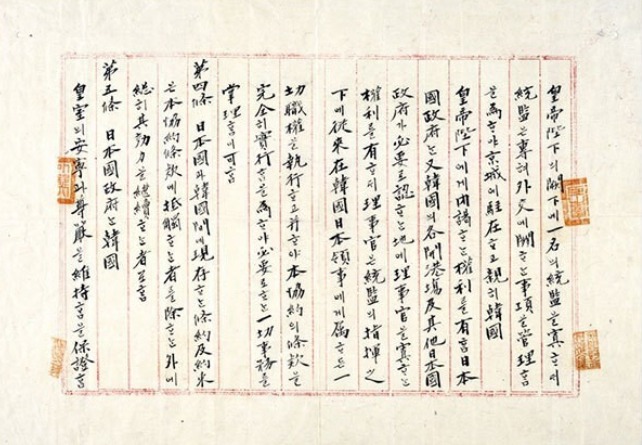 皇帝陛下의 闕下에 一名의 統監을 寘ᄒᆞ되
統監은 專혀 外交에 關ᄒᆞᄂᆞᆫ 事項을 管理ᄒᆞᆷ
을 爲ᄒᆞ야 京城에 駐在ᄒᆞ고 親히 韓國
皇帝陛下에게 內謁ᄒᆞᄂᆞᆫ 權利를 有ᄒᆞᆷ 日本
國政府ᄂᆞᆫ 又韓國의 各開港場及其他日本國
政府가 必要로 認ᄒᆞᄂᆞᆫ 地에 理事官을 寘ᄒᆞᄂᆞᆫ
權利를 有ᄒᆞ되 理事官은 統監의 指揮之
下에 從來在韓國日本領事에게 屬ᄒᆞ든 一
切職權을 執行ᄒᆞ고 幷ᄒᆞ야 本協約의 條款을
完全히 實行ᄒᆞᆷ을 爲ᄒᆞ야 必要로 ᄒᆞᄂᆞᆫ 一切事務를
掌理ᄒᆞᆷ이 可ᄒᆞᆷ
第四條 日本國과 韓國間에 現存ᄒᆞᄂᆞᆫ 條約及約束
은 本協約條款에 抵觸ᄒᆞᄂᆞᆫ 者를 除ᄒᆞᄂᆞᆫ 外에
總히 其効力을 繼續ᄒᆞᄂᆞᆫ 者로 ᄒᆞᆷ
第五條 日本國政府ᄂᆞᆫ 韓國
皇室의 安寧과 尊嚴을 維持ᄒᆞᆷ을 保證ᄒᆞᆷ